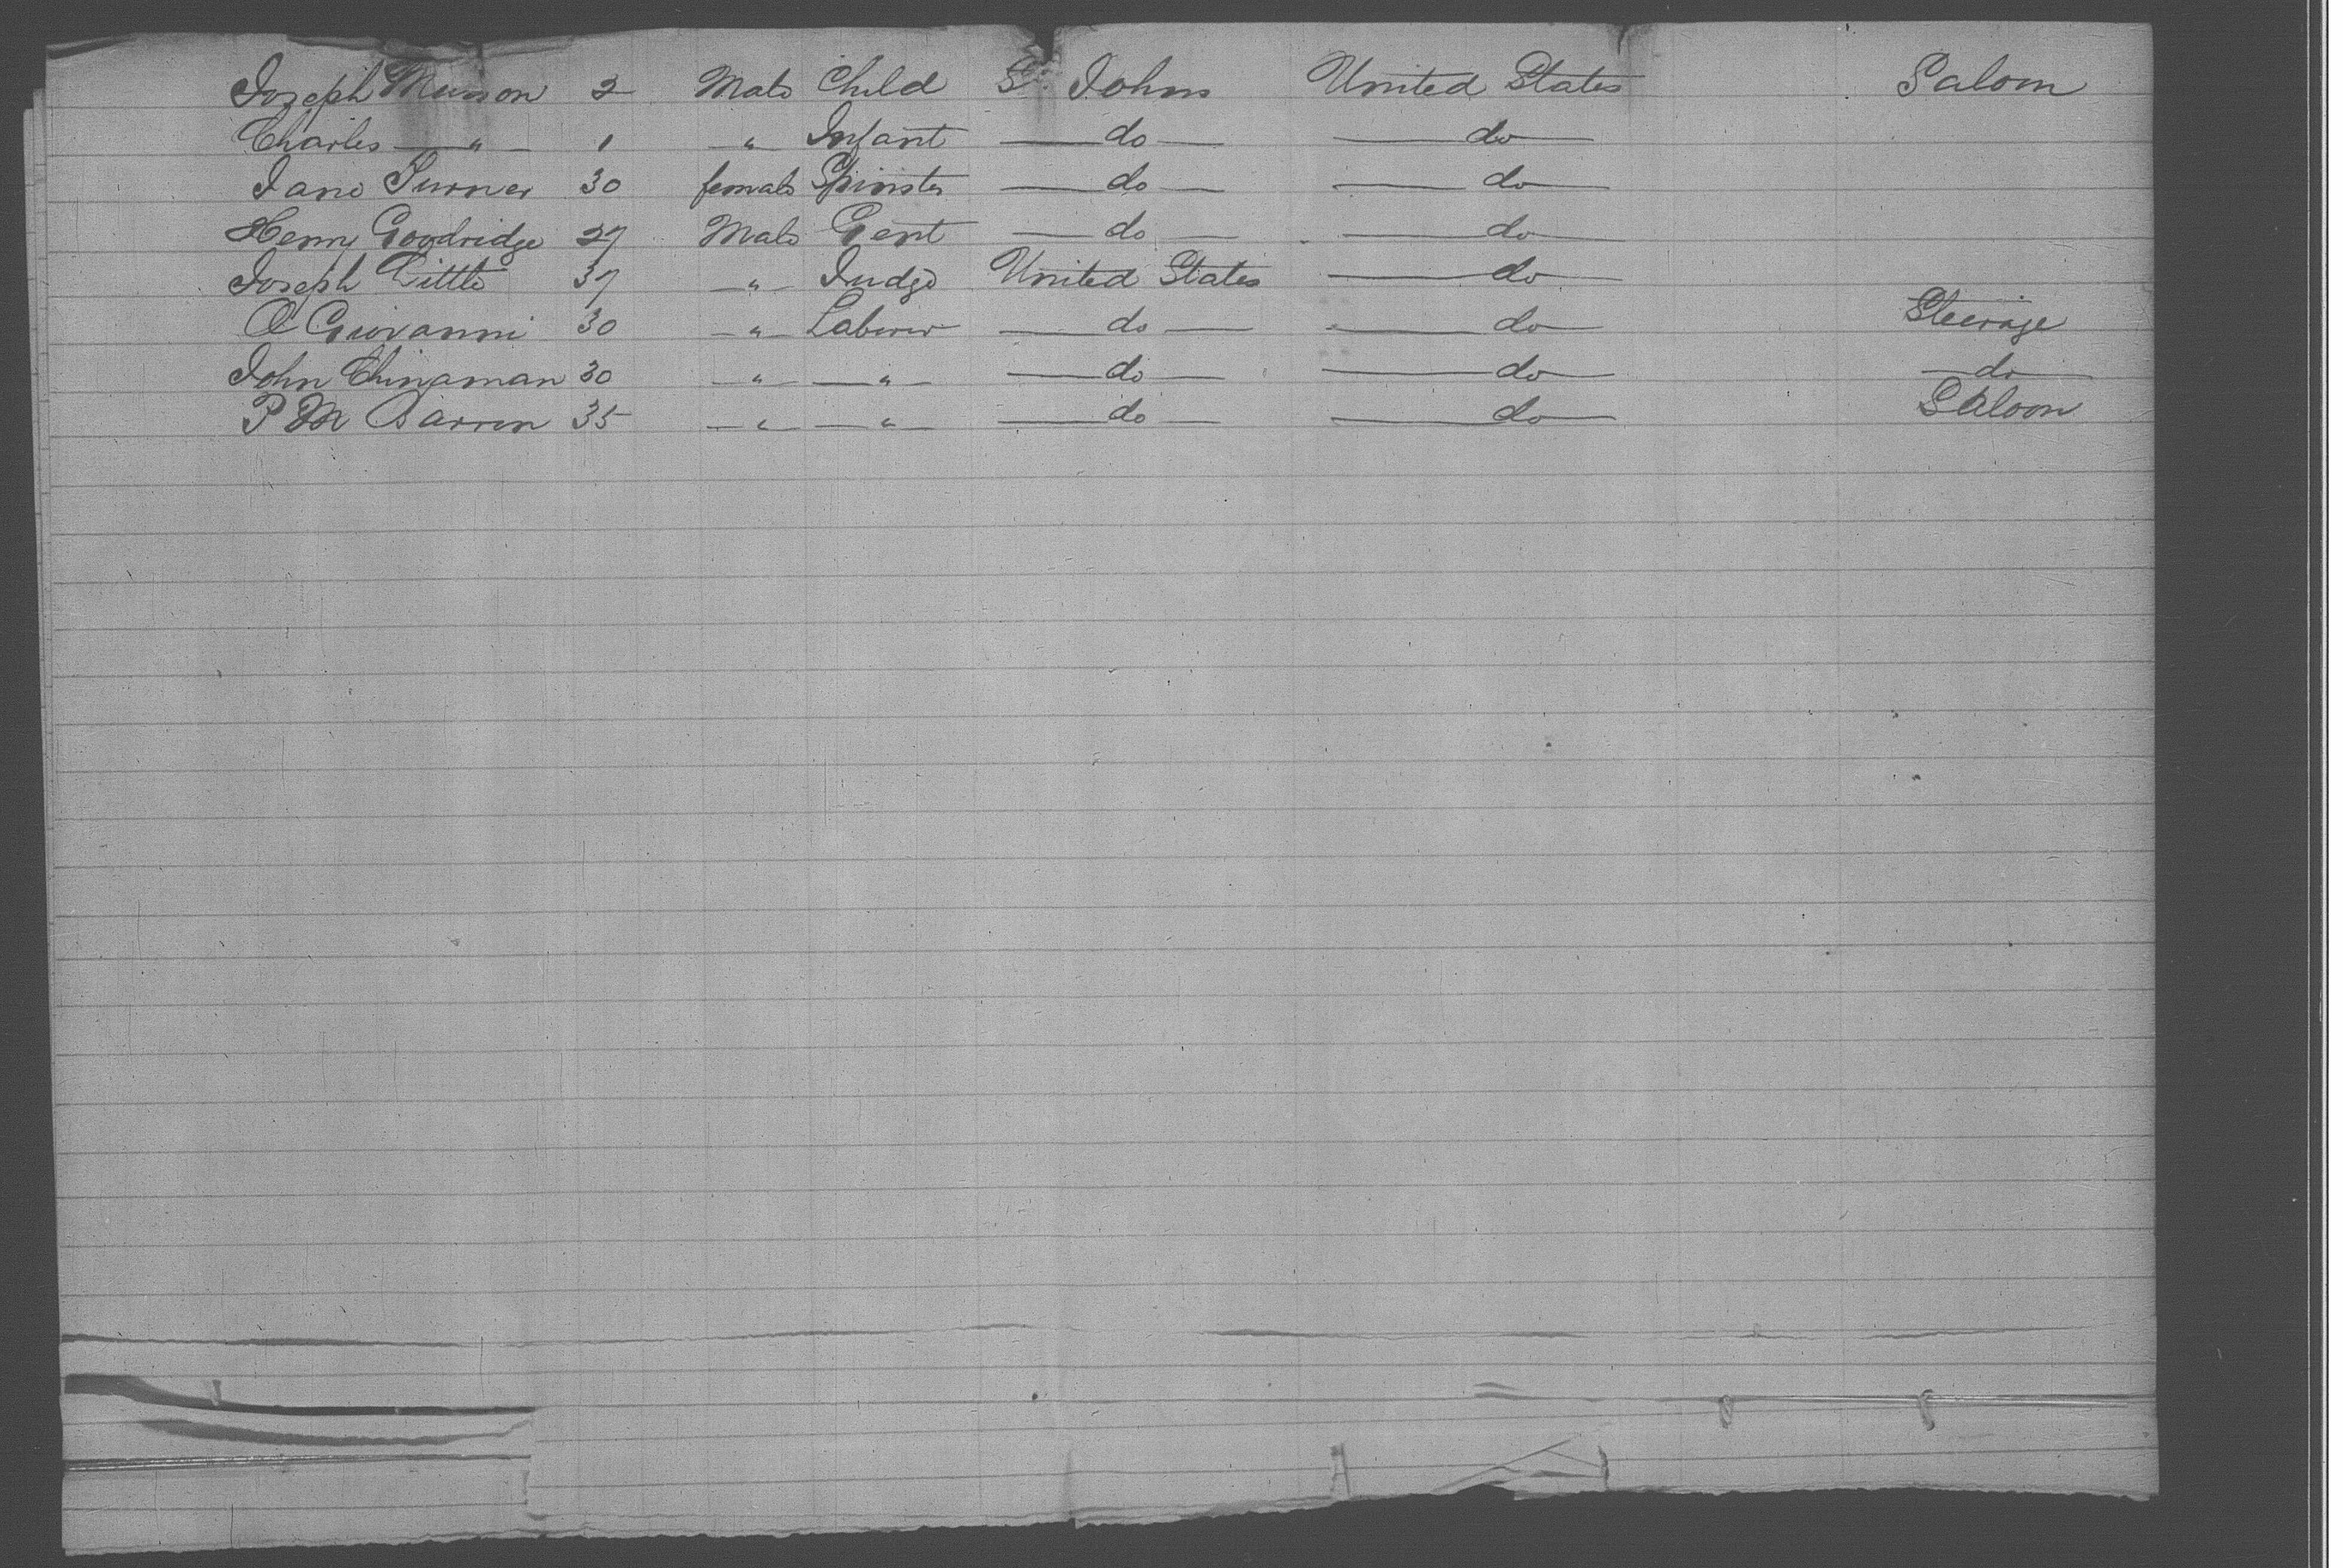 Joseph Munson 2 Male Child St Johns United States Saloon
Charles — " — 1 — " — Infant — do — — do —
Jane Turner 30 female Spinster — do — — do —
Henry Goodridge 27 Male Gent — do — — do —
Joseph Little 37 — " — Judge United States — do —
Giovanni 30 — " — Laborer — do — — do — Steerage
John Chinaman 30 — " — — " — — do — — do — — do —
P M Barron 35 — " — — " — — do — — do — Saloon